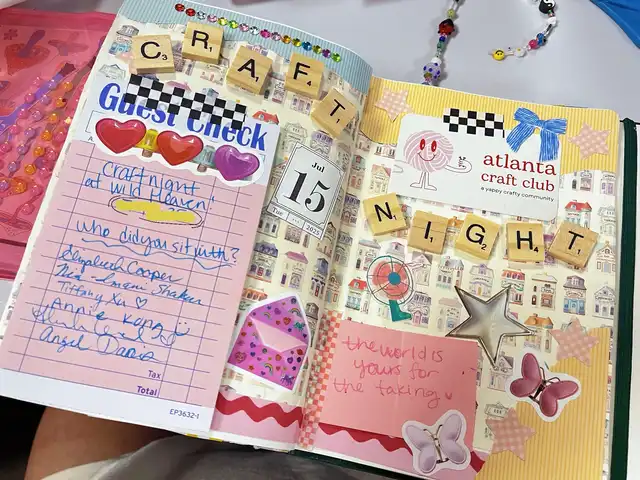 C3 R1 A1 F4 T1
Guest Check
craft night
at wild Heaven!
who did you sit with?
Elizabeth Cooper
Tiffany Xu ♡
Annie Kong
Angel Davis
Tax
Total
EP3632-1
Jul
15
Tue 2025
atlanta
craft club
a yappy crafty community
N1 I1 G2 H4 T1
the world is
yours for
the taking